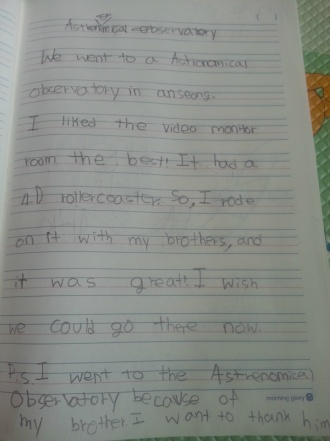 Astronomical observatory
We went to a Astronomical
observatory in anseong.
I liked the video monitor
room the best! It had a
4D rollercoaster. So, I rode
on it with my brothers, and
it was great! I wish
we could go there now.
P.s I went to the Astronomical
Observatory because of
morning glory
my brother. I want to thank him